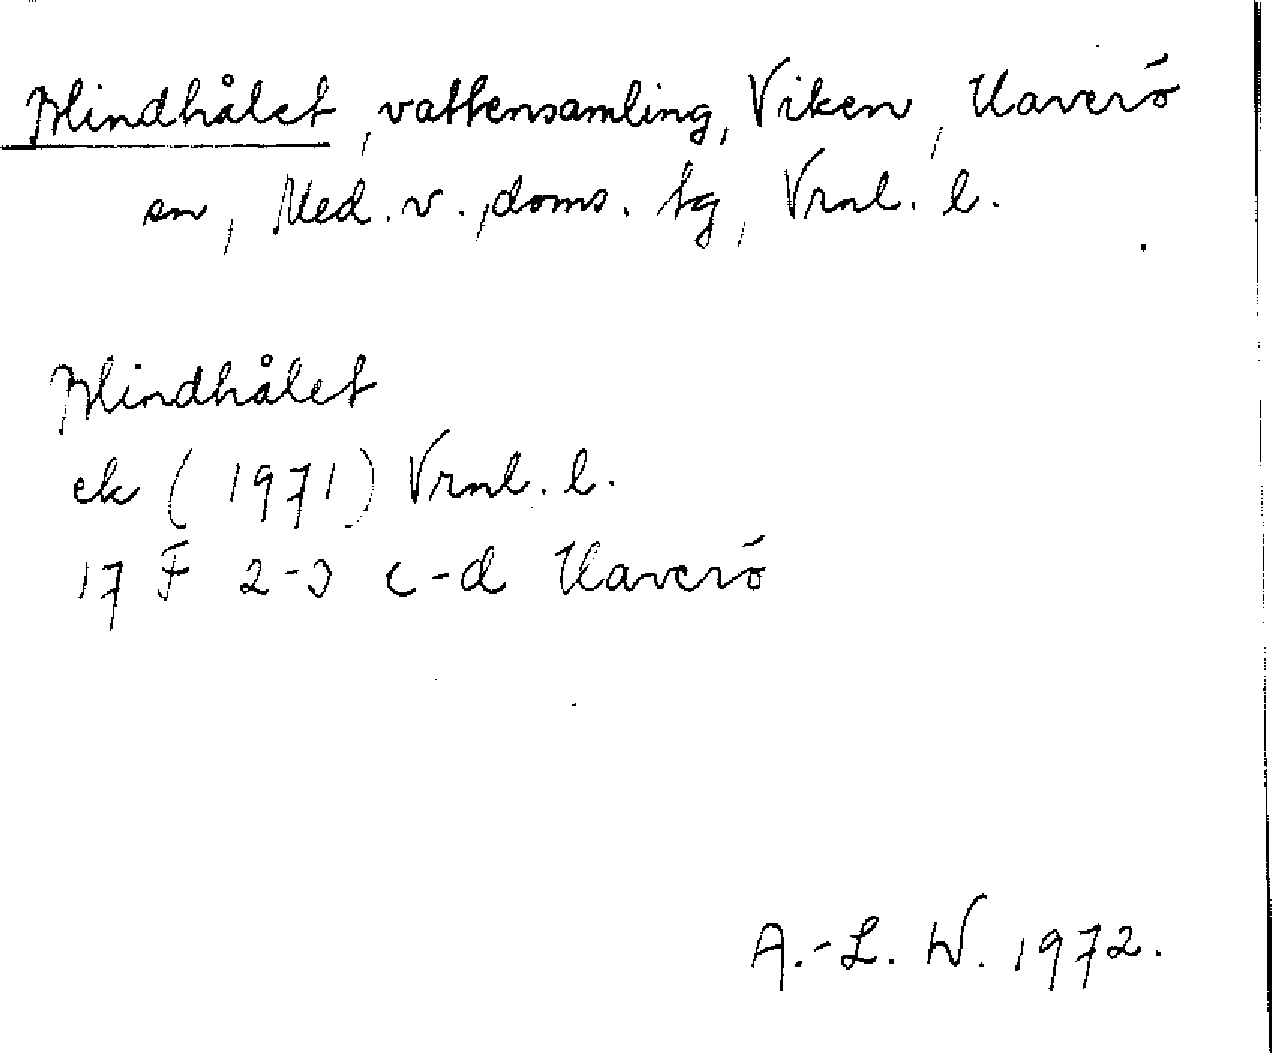 Blindhålet, vattensamling, Viken, Haverö
sn, Med. v., doms. tg, Vrnl. l.
Blindhålet
ek (1971) Vrnl. l.
17 F 2-3 c-d Haverö
A.-L. W. 1972.